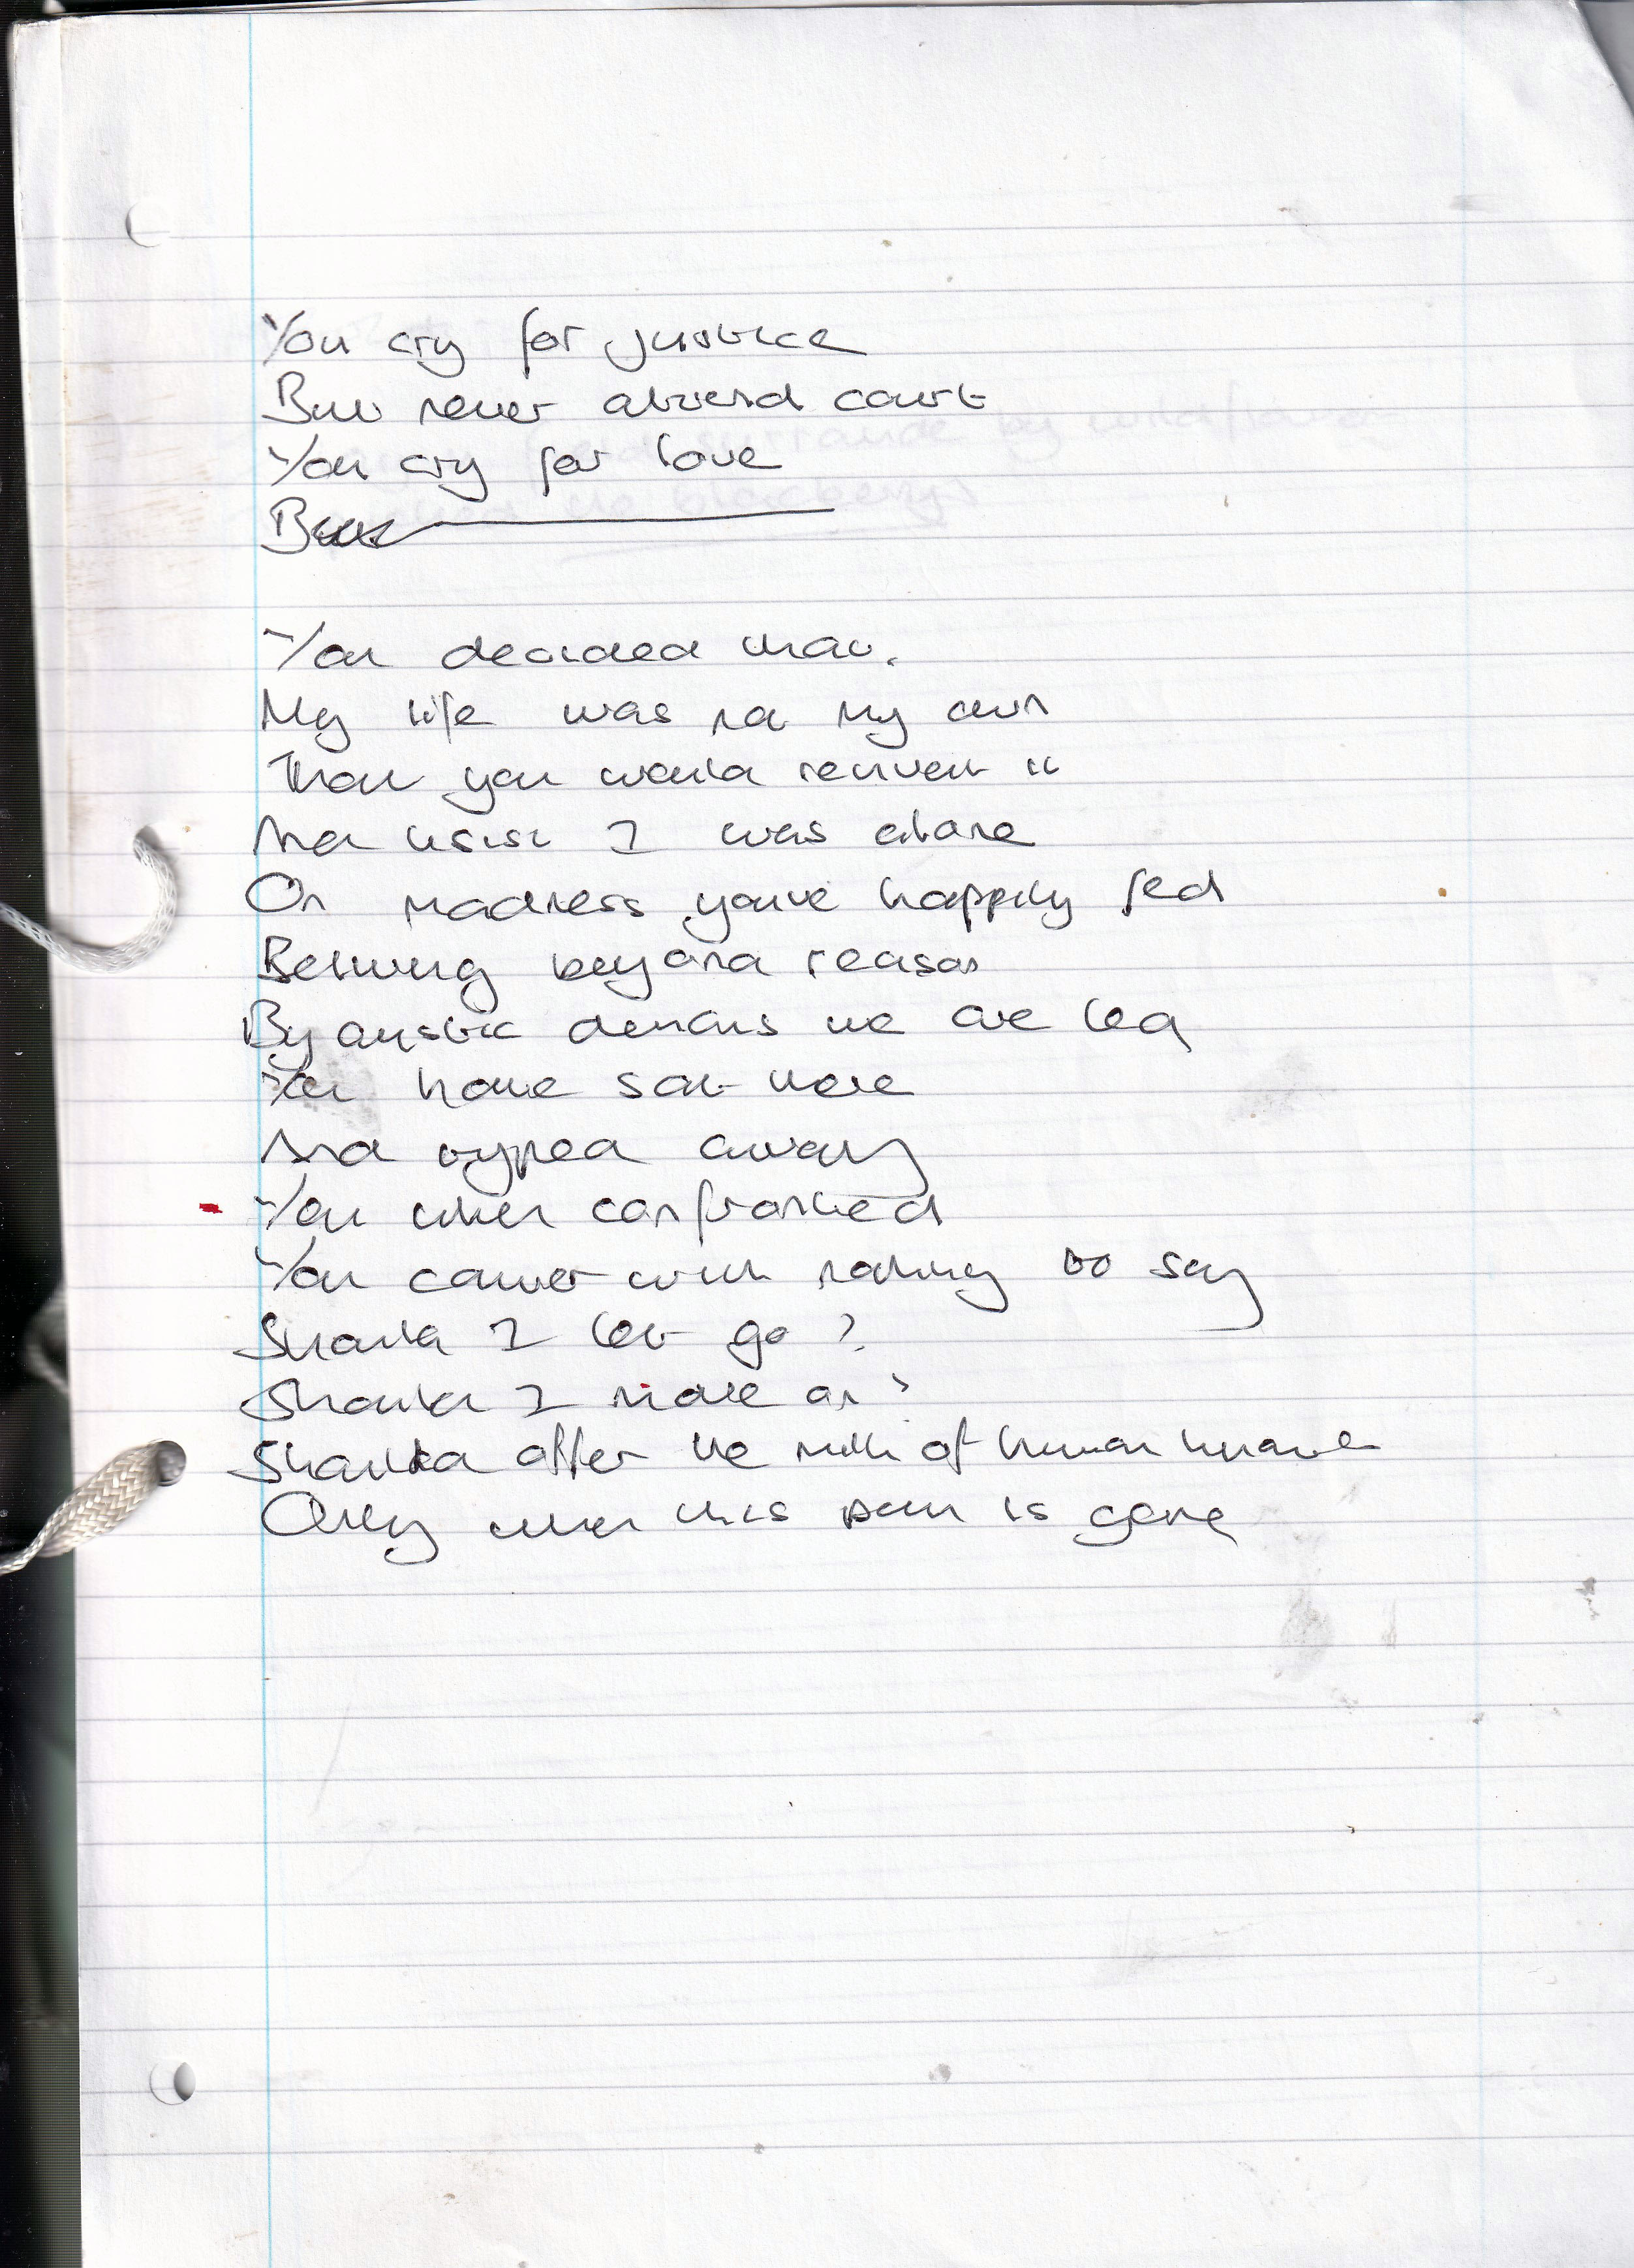 You cry for justice
But never attend court
You cry for love
But
You decided that.
My life was not my own
That you would reinvent it
And insist I was alone
On madness you've happily fed
Beyond reason
By demons we are led
You have sat there
And typed away
You when confronted
You cower with nothing to say
Should I let go?
Should I move on?
Should offer the milk of human
Only when this pain is gone